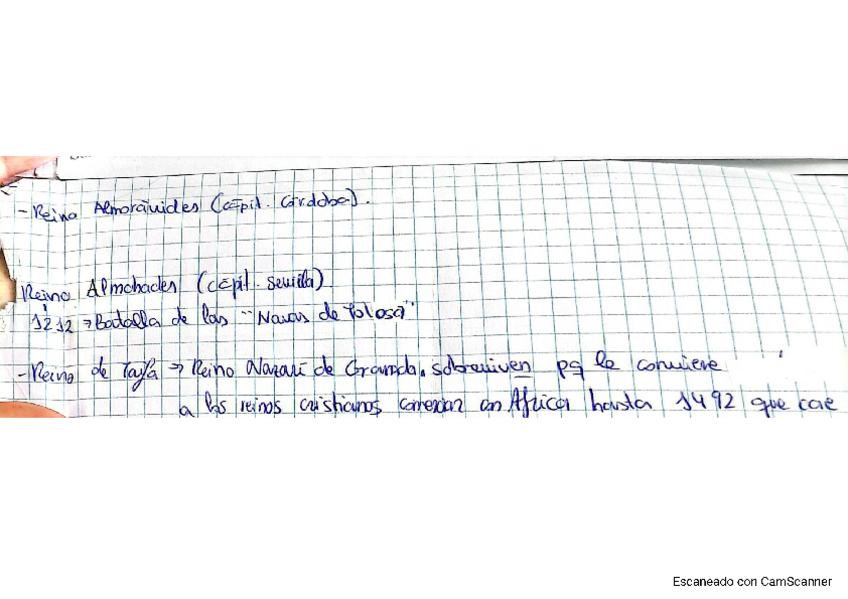 - Reino Almorávides (capit. Córdoba).
Reino Almohades (capit. Sevilla)
1212 → Batalla de las "Navas de Tolosa"
- Reino de Taifa → Reino Nazarí de Granada. sobreviven pq le conviene
a los reinos cristianos comerciar con África hasta 1492 que cae
Escaneado con CamScanner